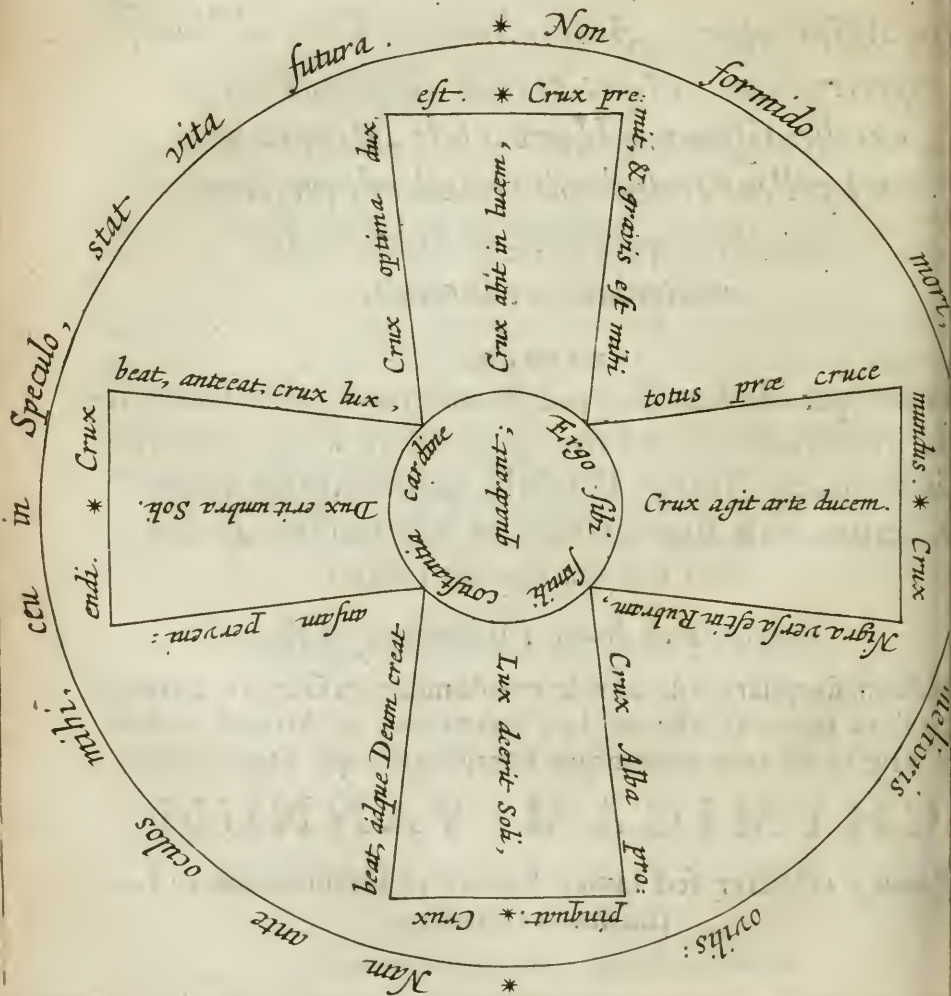 * Non formido mori, melioris ovilis:
* Nam ante oculos mihi, ceu in Speculo, ſtat vita futura.
* Crux pre:
mit, & gravis eſt mihi
totus præ cruce
mundus. * Crux
Nigra verſa eſt in Rubram,
Crux Alba pro:
pinquat. * Crux
beat, ádque Deum creat
anſam perveni:
endi. * Crux
beat, anteeat, crux lux,
Crux optima dux
eſt.
Crux abit in lucem,
Crux agit arte ducem.
Lux deerit Soli,
Dux erit umbra Soli.
Ergo ſibi ſimili conſtantia cardine
quadrant: